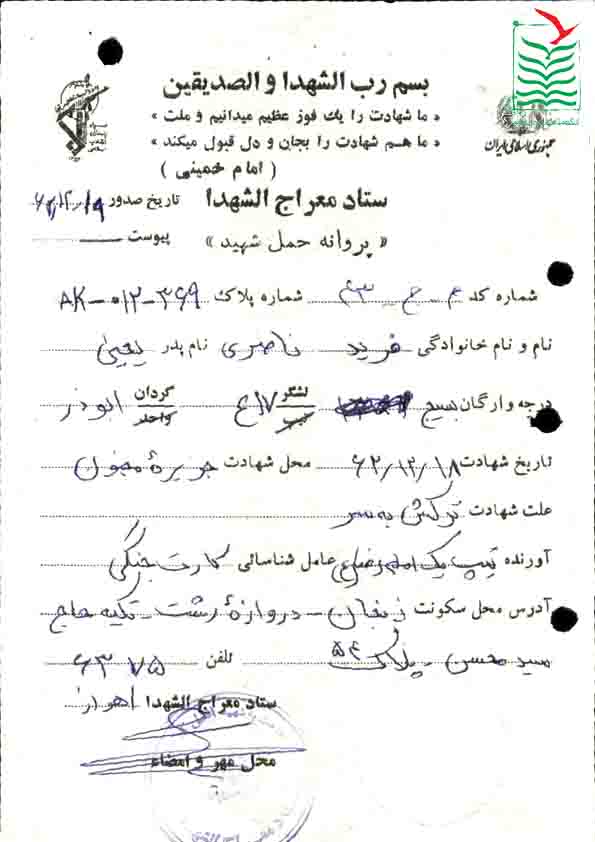 بسم رب الشهدا و الصدیقین
« ما شهادت را یك فوز عظیم میدانیم و ملت »
« ما هم شهادت را بجان و دل قبول میکند »
( امام خمینی )
جمهوری اسلامی ایران
ستاد معراج الشهدا تاریخ صدور ۶۲/۱۲/۱۹
« پروانه حمل شهید » پیوست
شماره کد ع - ح - ۶۳ شماره پلاك AK-۰۱۲-۳۶۹
نام و نام خانوادگی فرید ناصری نام پدر یحیی
درجه و ارگان بسیج لشگر تیپ ۱۷ ع گردان واحد ابوذر
تاریخ شهادت ۶۲/۱۲/۱۸ محل شهادت جزیرهٔ مجنون
علت شهادت ترکش به سر
آورنده تیپ یک امام رضا (ع) عامل شناسائی کارت جنگی
آدرس محل سکونت زنجان - دروازهٔ رشت - تکیه حاج
سید محسن - پلاک ۵۴ تلفن ۶۳۷۵
ستاد معراج الشهدا اهواز
محل مهر و امضاء